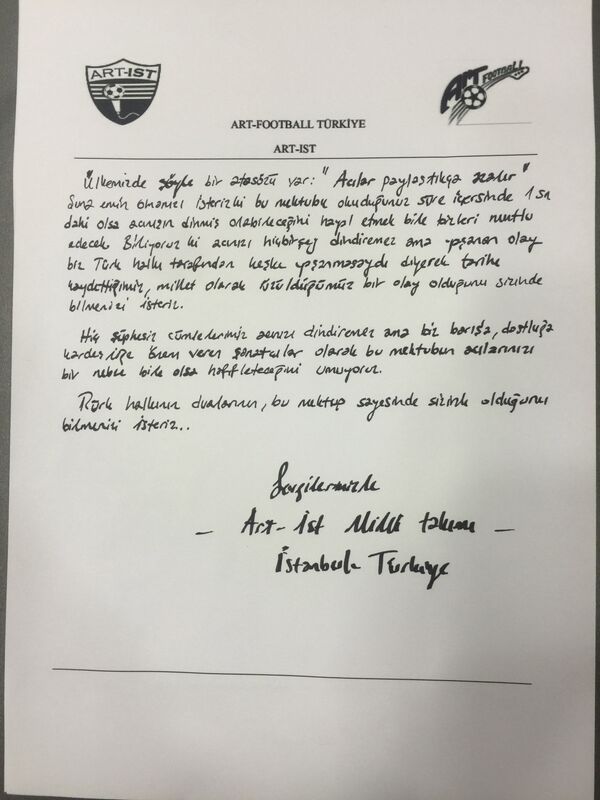 ART-IST
ART FOOTBALL
ART-FOOTBALL TÜRKİYE
ART-IST
Ülkemizde şöyle bir atasözü var: "Acılar paylaştıkça azalır"
Şuna emin olmanızı isterizki bu mektubu okuduğunuz süre içersinde 1 sn
daki olsa acınızın dinmiş olabileceğini hayal etmek bile bizleri mutlu
edecek. Biliyoruz ki acınızı hiçbirşey dindiremez ama yaşanan olay
biz Türk halkı tarafından keşke yaşanmasaydı diyerek tarihe
kaydettiğimiz, millet olarak üzüldüğümüz bir olay olduğunu sizinde
bilmenizi isteriz.
Hiç şüphesiz cümlelerimiz acınızı dindiremez ama biz barışa, dostluğa
kardeşliğe önem veren sanatcılar olarak bu mektubun acılarınızı
bir nebze bile olsa hafifleteceğini umuyoruz.
Türk halkının dualarının, bu mektup sayesinde sizinle olduğunu
bilmenizi isteriz..
Sevgilerimizle
- Art-İst Milli takımı -
İstanbul Türkiye